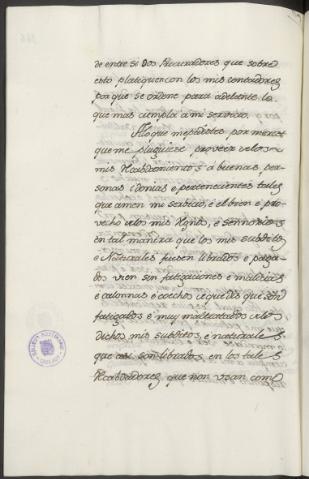 de entre si dos Procuradores que sobre
esto platiquen con los mis contadores
por que se ordene para adelante lo
que mas cumpla a mi servicio.
Alo que me pedistes, por merced
que me pluguiese proveer de los
mis Recabdamientos á buenas per-
sonas idonias e pertenecientes tales
que amen mi servicio, é el bien é pro-
vecho de los mis Regnos, é Señorios
en tal manera que los mis subditos
é Naturales fuesen librados e paga-
dos vien sin fatigaciones é malicias
é calonnas é coechos, ca que dis que son
fatigados é muy maltratados de los
dichos mis subditos é naturales
que asi son librados, en los tales
Recabdadores, que non usan como